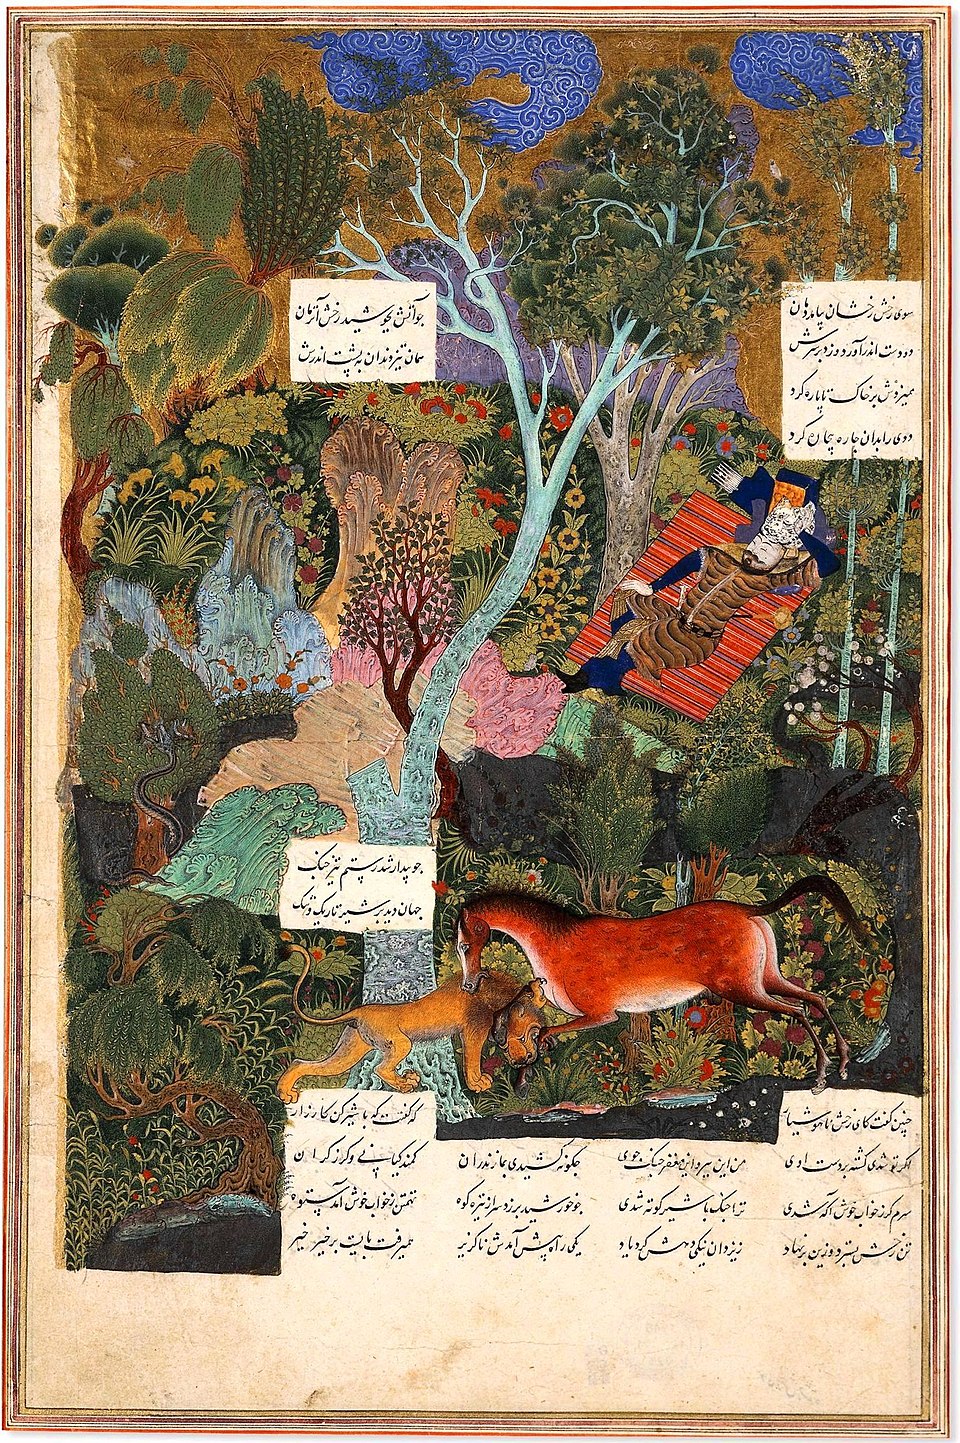 سوی رخش رخشان بیامد دمان چو آتش بجوشید رخش آن زمان
دو دست اندر آورد و زد بر سرش همان تیز دندان به پشت اندرش
همی زدش بر خاک تا پاره کرد
ددی را بدان چاره بیچاره کرد
چو بیدار شد رستم تیز چنگ
جهان دید بر شیر تاریک و تنگ
چنین گفت کای رخش ناهوشیار که گفتت که با شیر کن کارزار
اگر تو شدی کشته بر دست اوی من این ببر و این مغفر جنگ جوی چگونه کشیدی بمازندران کمند کیانی و گرز گران
سرم گر ز خواب خوش آگه شدی ترا جنگ با شیر کوته شدی چو خورشید برزد سر از تیره کوه تهمتن ز خواب خوش آمد ستوه
تن رخش بسترد و زین برنهاد ز یزدان نیکی دهش کرد یاد یکی راه پیش آمدش ناگزیر همی رفت بایست بر خیر خیر